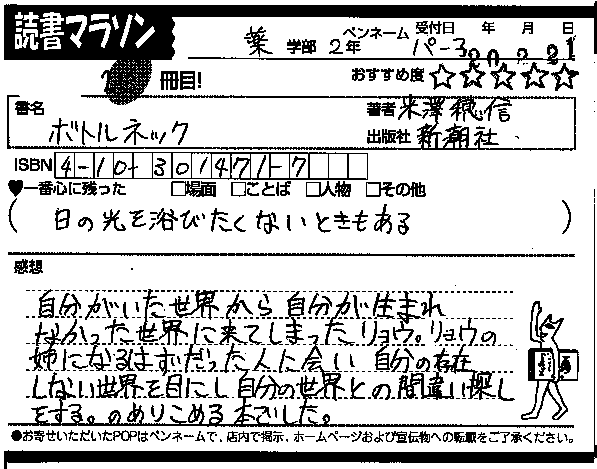 読書マラソン
薬 学部 2年 ペンネーム パーコ 受付日 年 月 日
冊目! おすすめ度 ☆☆☆☆☆
書名 ボトルネック
著者 米澤穂信
出版社 新潮社
ISBN 4-10-301471-7
♥一番心に残った □場面 □ことば □人物 □その他
(日の光を浴びたくないときもある)
感想
自分がいた世界から自分が生まれ
なかった世界に来てしまったリョウ。リョウの
姉になるはずだった人に会い 自分の存在
しない世界を目にし自分の世界との間違い探し
をする。のめりこめる本でした。
●お寄せいただいたPOPはペンネームで、店内で掲示、ホームページおよび宣伝物への転載をご了承ください。